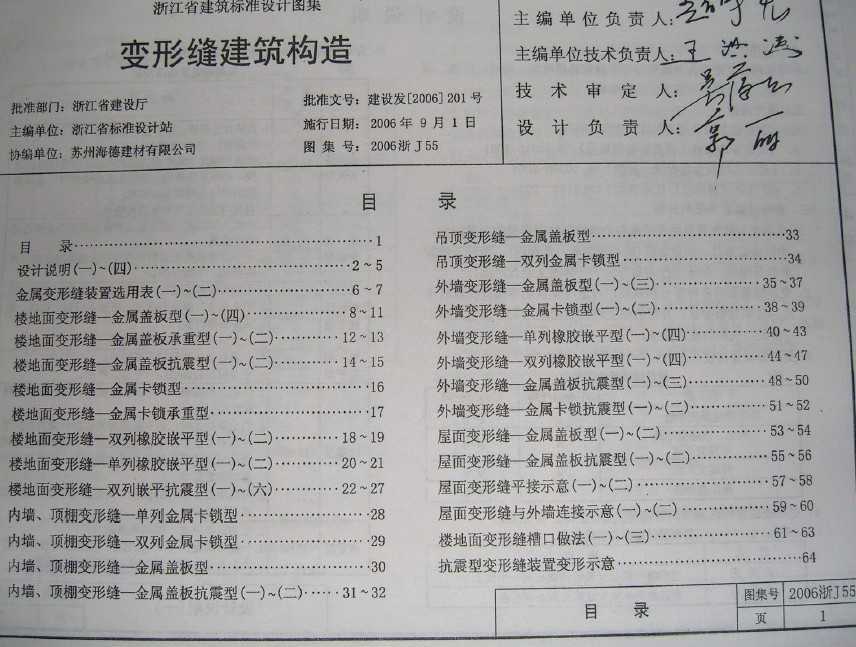 浙江省建筑标准设计图集
变形缝建筑构造
批准部门：浙江省建设厅
主编单位：浙江省标准设计站
协编单位：苏州海德建材有限公司
批准文号：建设发[2006]201号
施行日期：2006年9月1日
图集号：2006浙J55
主编单位负责人：
主编单位技术负责人：
技术审定人：
设计负责人：
目 录
目 录……1
设计说明(一)~(四)……2~5
金属变形缝装置选用表(一)~(二)……6~7
楼地面变形缝—金属盖板型(一)~(四)……8~11
楼地面变形缝—金属盖板承重型(一)~(二)……12~13
楼地面变形缝—金属盖板抗震型(一)~(二)……14~15
楼地面变形缝—金属卡锁型……16
楼地面变形缝—金属卡锁承重型……17
楼地面变形缝—双列橡胶嵌平型(一)~(二)……18~19
楼地面变形缝—单列橡胶嵌平型(一)~(二)……20~21
楼地面变形缝—双列嵌平抗震型(一)~(六)……22~27
内墙、顶棚变形缝—单列金属卡锁型……28
内墙、顶棚变形缝—双列金属卡锁型……29
内墙、顶棚变形缝—金属盖板型……30
内墙、顶棚变形缝—金属盖板抗震型(一)~(二)……31~32
吊顶变形缝—金属盖板型……33
吊顶变形缝—双列金属卡锁型……34
外墙变形缝—金属盖板型(一)~(三)……35~37
外墙变形缝—金属卡锁型(一)~(二)……38~39
外墙变形缝—单列橡胶嵌平型(一)~(四)……40~43
外墙变形缝—双列橡胶嵌平型(一)~(四)……44~47
外墙变形缝—金属盖板抗震型(一)~(三)……48~50
外墙变形缝—金属卡锁抗震型(一)~(二)……51~52
屋面变形缝—金属盖板型(一)~(二)……53~54
屋面变形缝—金属盖板抗震型(一)~(二)……55~56
屋面变形缝平接示意(一)~(二)……57~58
屋面变形缝与外墙连接示意(一)~(二)……59~60
楼地面变形缝槽口做法(一)~(三)……61~63
抗震型变形缝装置变形示意……64
目 录
图集号 2006浙J55
页 1